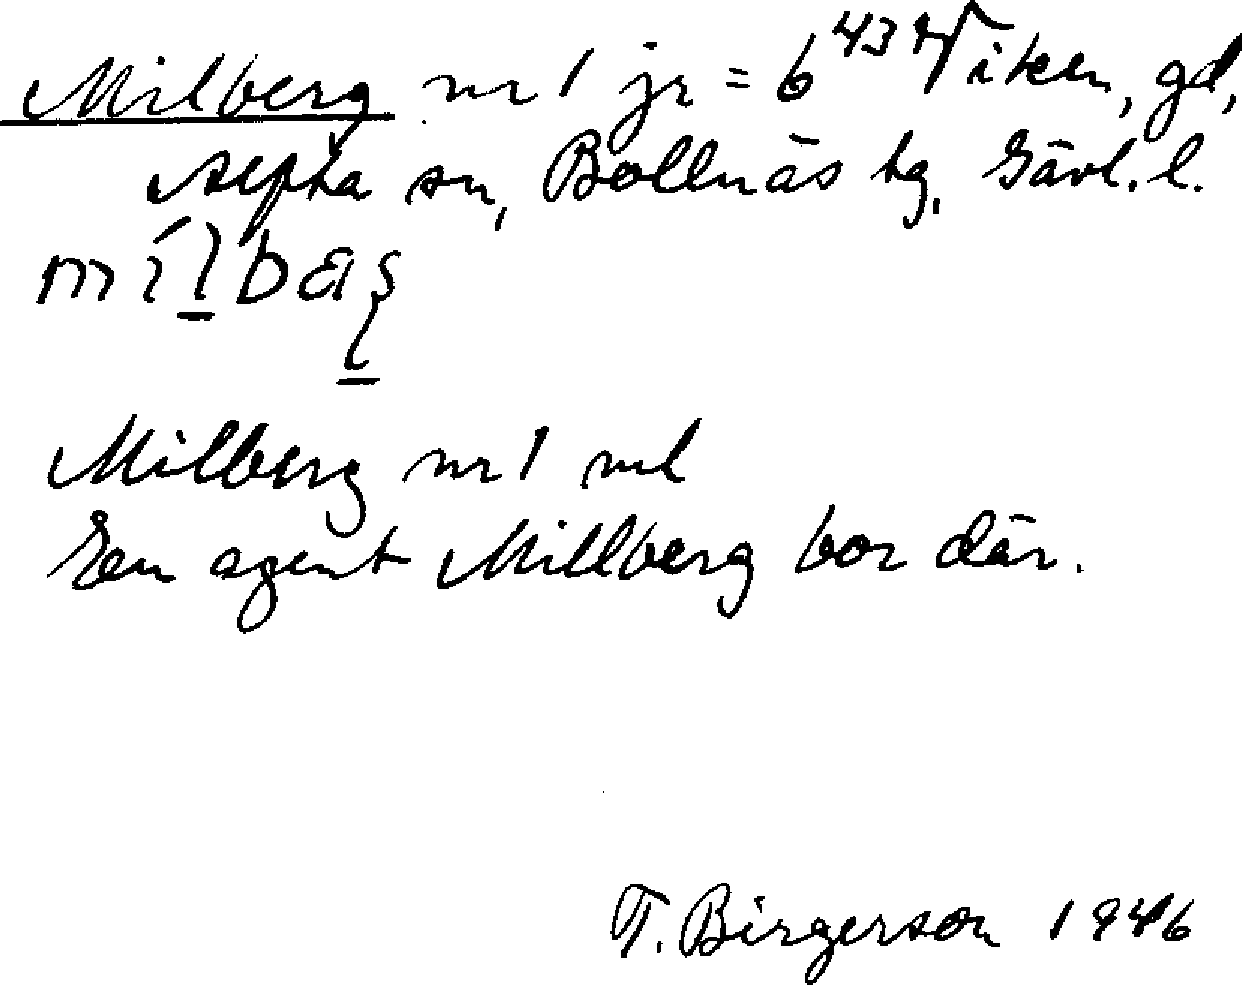 Milberg nr 1 jr = 6⁴³ Viken, gd,
Alfta sn, Bollnäs tg, Gävl. l.
Milberg nr 1 ml
En agent Millberg bor där.
T. Birgerson 1946